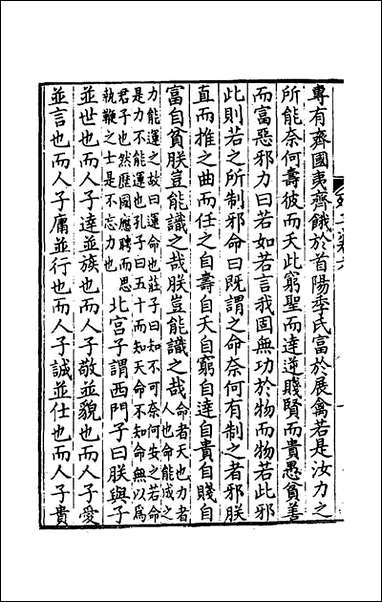 專有齊國夷齊餓於首陽季氏富於展禽若是汝力之
所能奈何壽彼而夭此窮聖而達逆賤賢而貴愚貧善
而富惡邪力曰若如若言我固無功於物而物若此邪
此則若之所制邪命曰既謂之命奈何有制之者邪朕
直而推之曲而任之自壽自夭自窮自達自貴自賤自
富自貧朕豈能識之哉朕豈能識之哉
命者天也力者
人也命能成之
力能運之故曰運命也莊子曰知不可奈何安之若命
是力不能運也孔子曰五十而知天命不知命無以為
君子也然歷國應聘而思
執鞭之士是不忘力也
北宮子謂西門子曰朕與子
並世也而人子達並族也而人子敬並貌也而人子愛
並言也而人子庸並行也而人子誠並仕也而人子貴